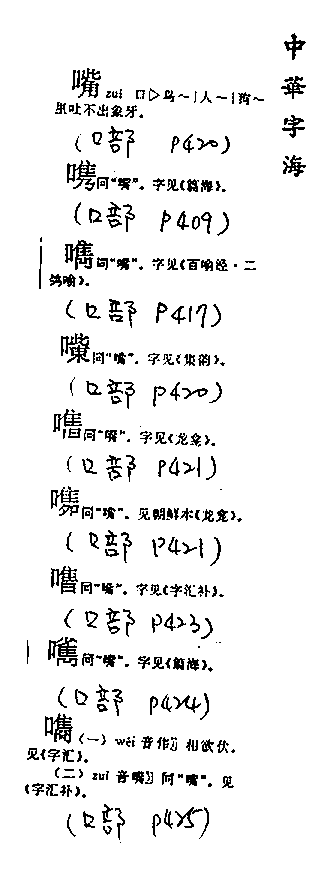 中華字海
嘴 zuǐ 口▷鸟～|人～|狗～
里吐不出象牙。
(口部 P420)
同"嘴"。字见《篇海》。
(口部 P409)
同"嘴"。字见《百喻经·二
鸽喻》。
(口部 P417)
同"嘴"。字见《集韵》。
(口部 P420)
同"嘴"。字见《龙龛》。
(口部 P421)
同"嘴"。见朝鲜本《龙龛》。
(口部 P421)
同"嘴"。字见《字汇补》。
(口部 P423)
同"嘴"。字见《篇海》。
(口部 P424)
(一) wèi 音作〗相欲伏。
见《字汇》。
(二) zuǐ 音嘴〗同"嘴"。见
《字汇补》。
(口部 P425)